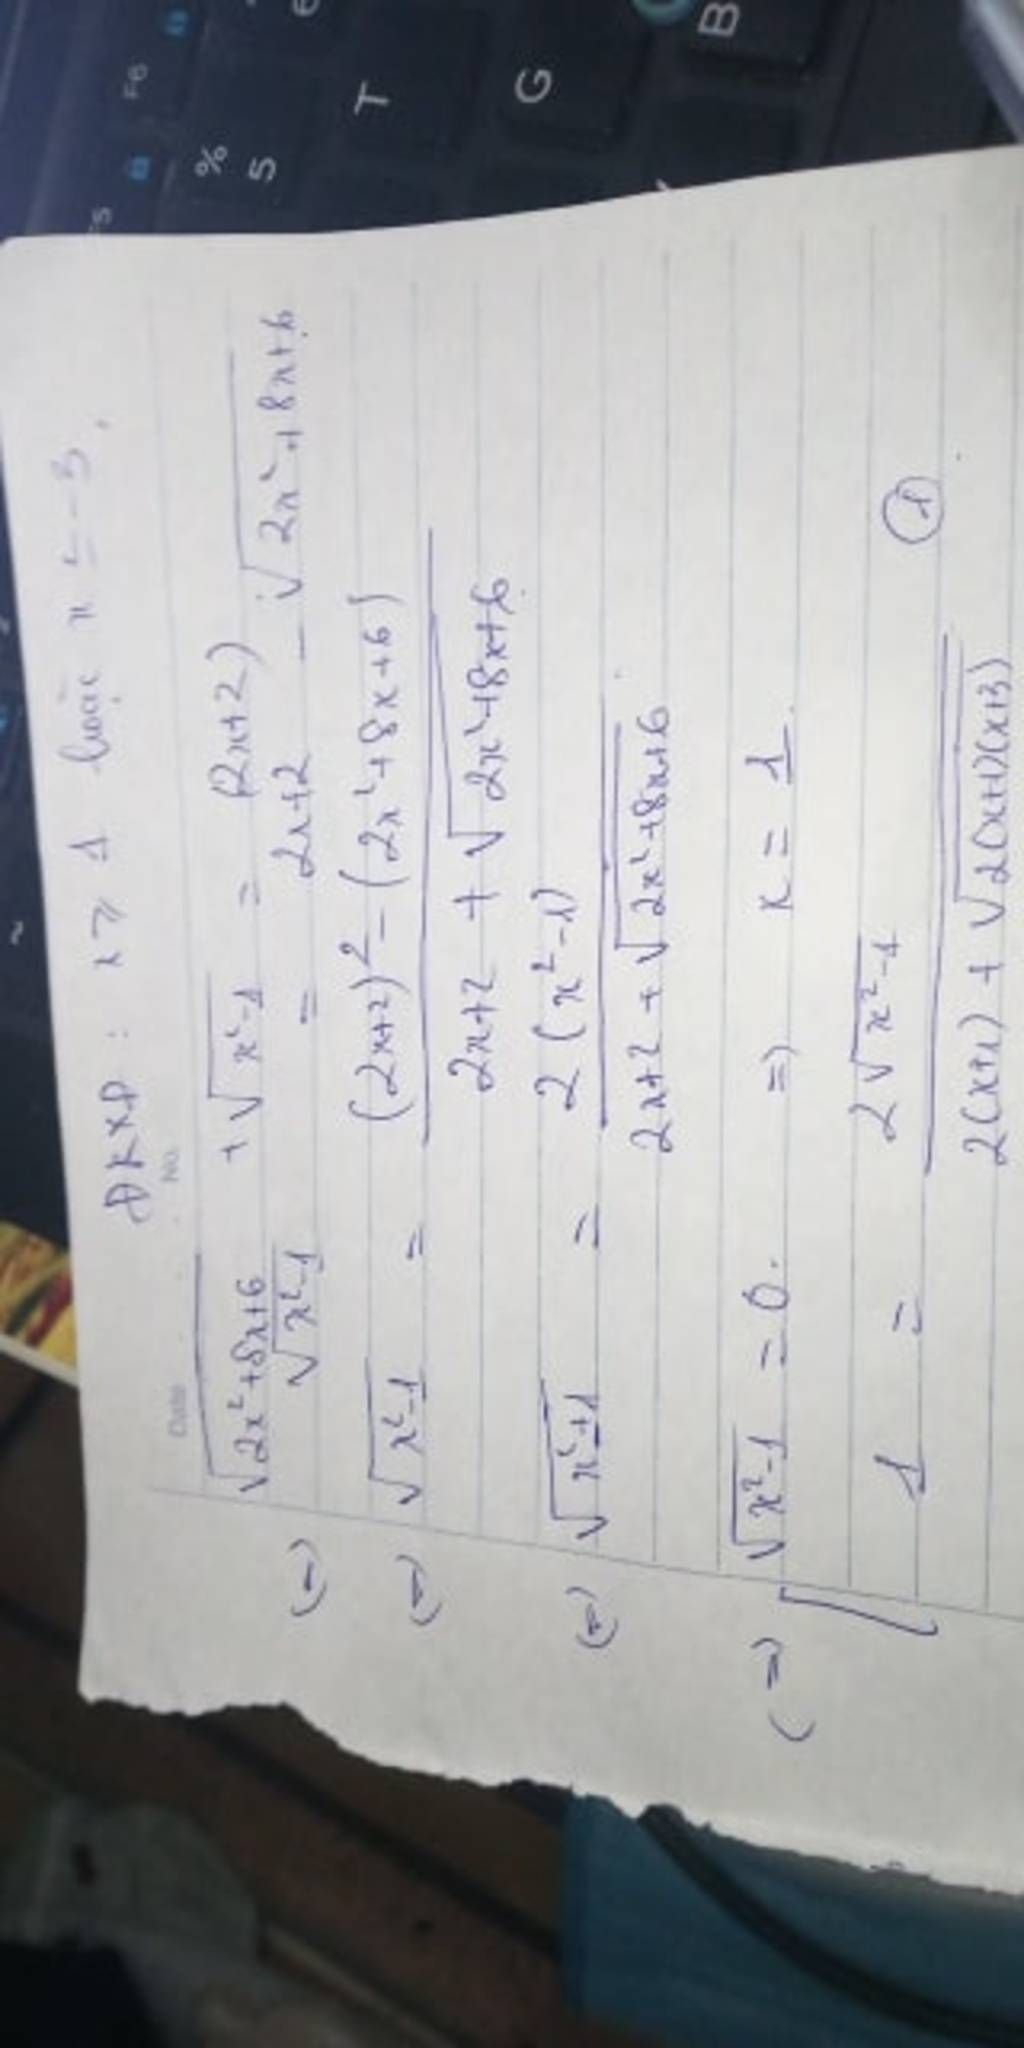 ĐKXĐ : x ≥ 1 hoặc x ≤ -3.
Date No.
√(2x²+8x+6) + √(x²-1) = (2x+2)
(=) √(x²-1) = 2x+2 - √(2x²+8x+6)
(=) √(x²-1) = ((2x+2)² - (2x²+8x+6)) / (2x+2 + √(2x²+8x+6))
(=) √(x²+1) = 2(x²-1) / (2x+2 + √(2x²+8x+6))
(=) [ √(x²-1) = 0. => x = 1
1 = 2√(x²-1) / (2(x+1) + √(2(x+1)(x+3))) ①
F6
% 5
T
G
B